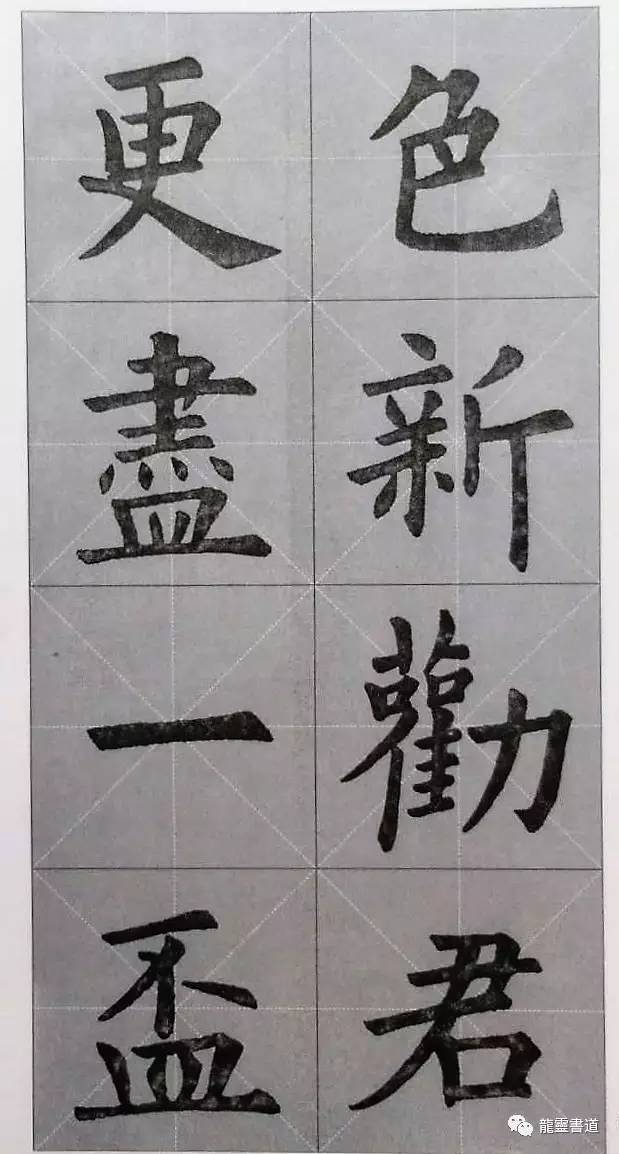 色新勸君
更盡一盃
龍靈書道